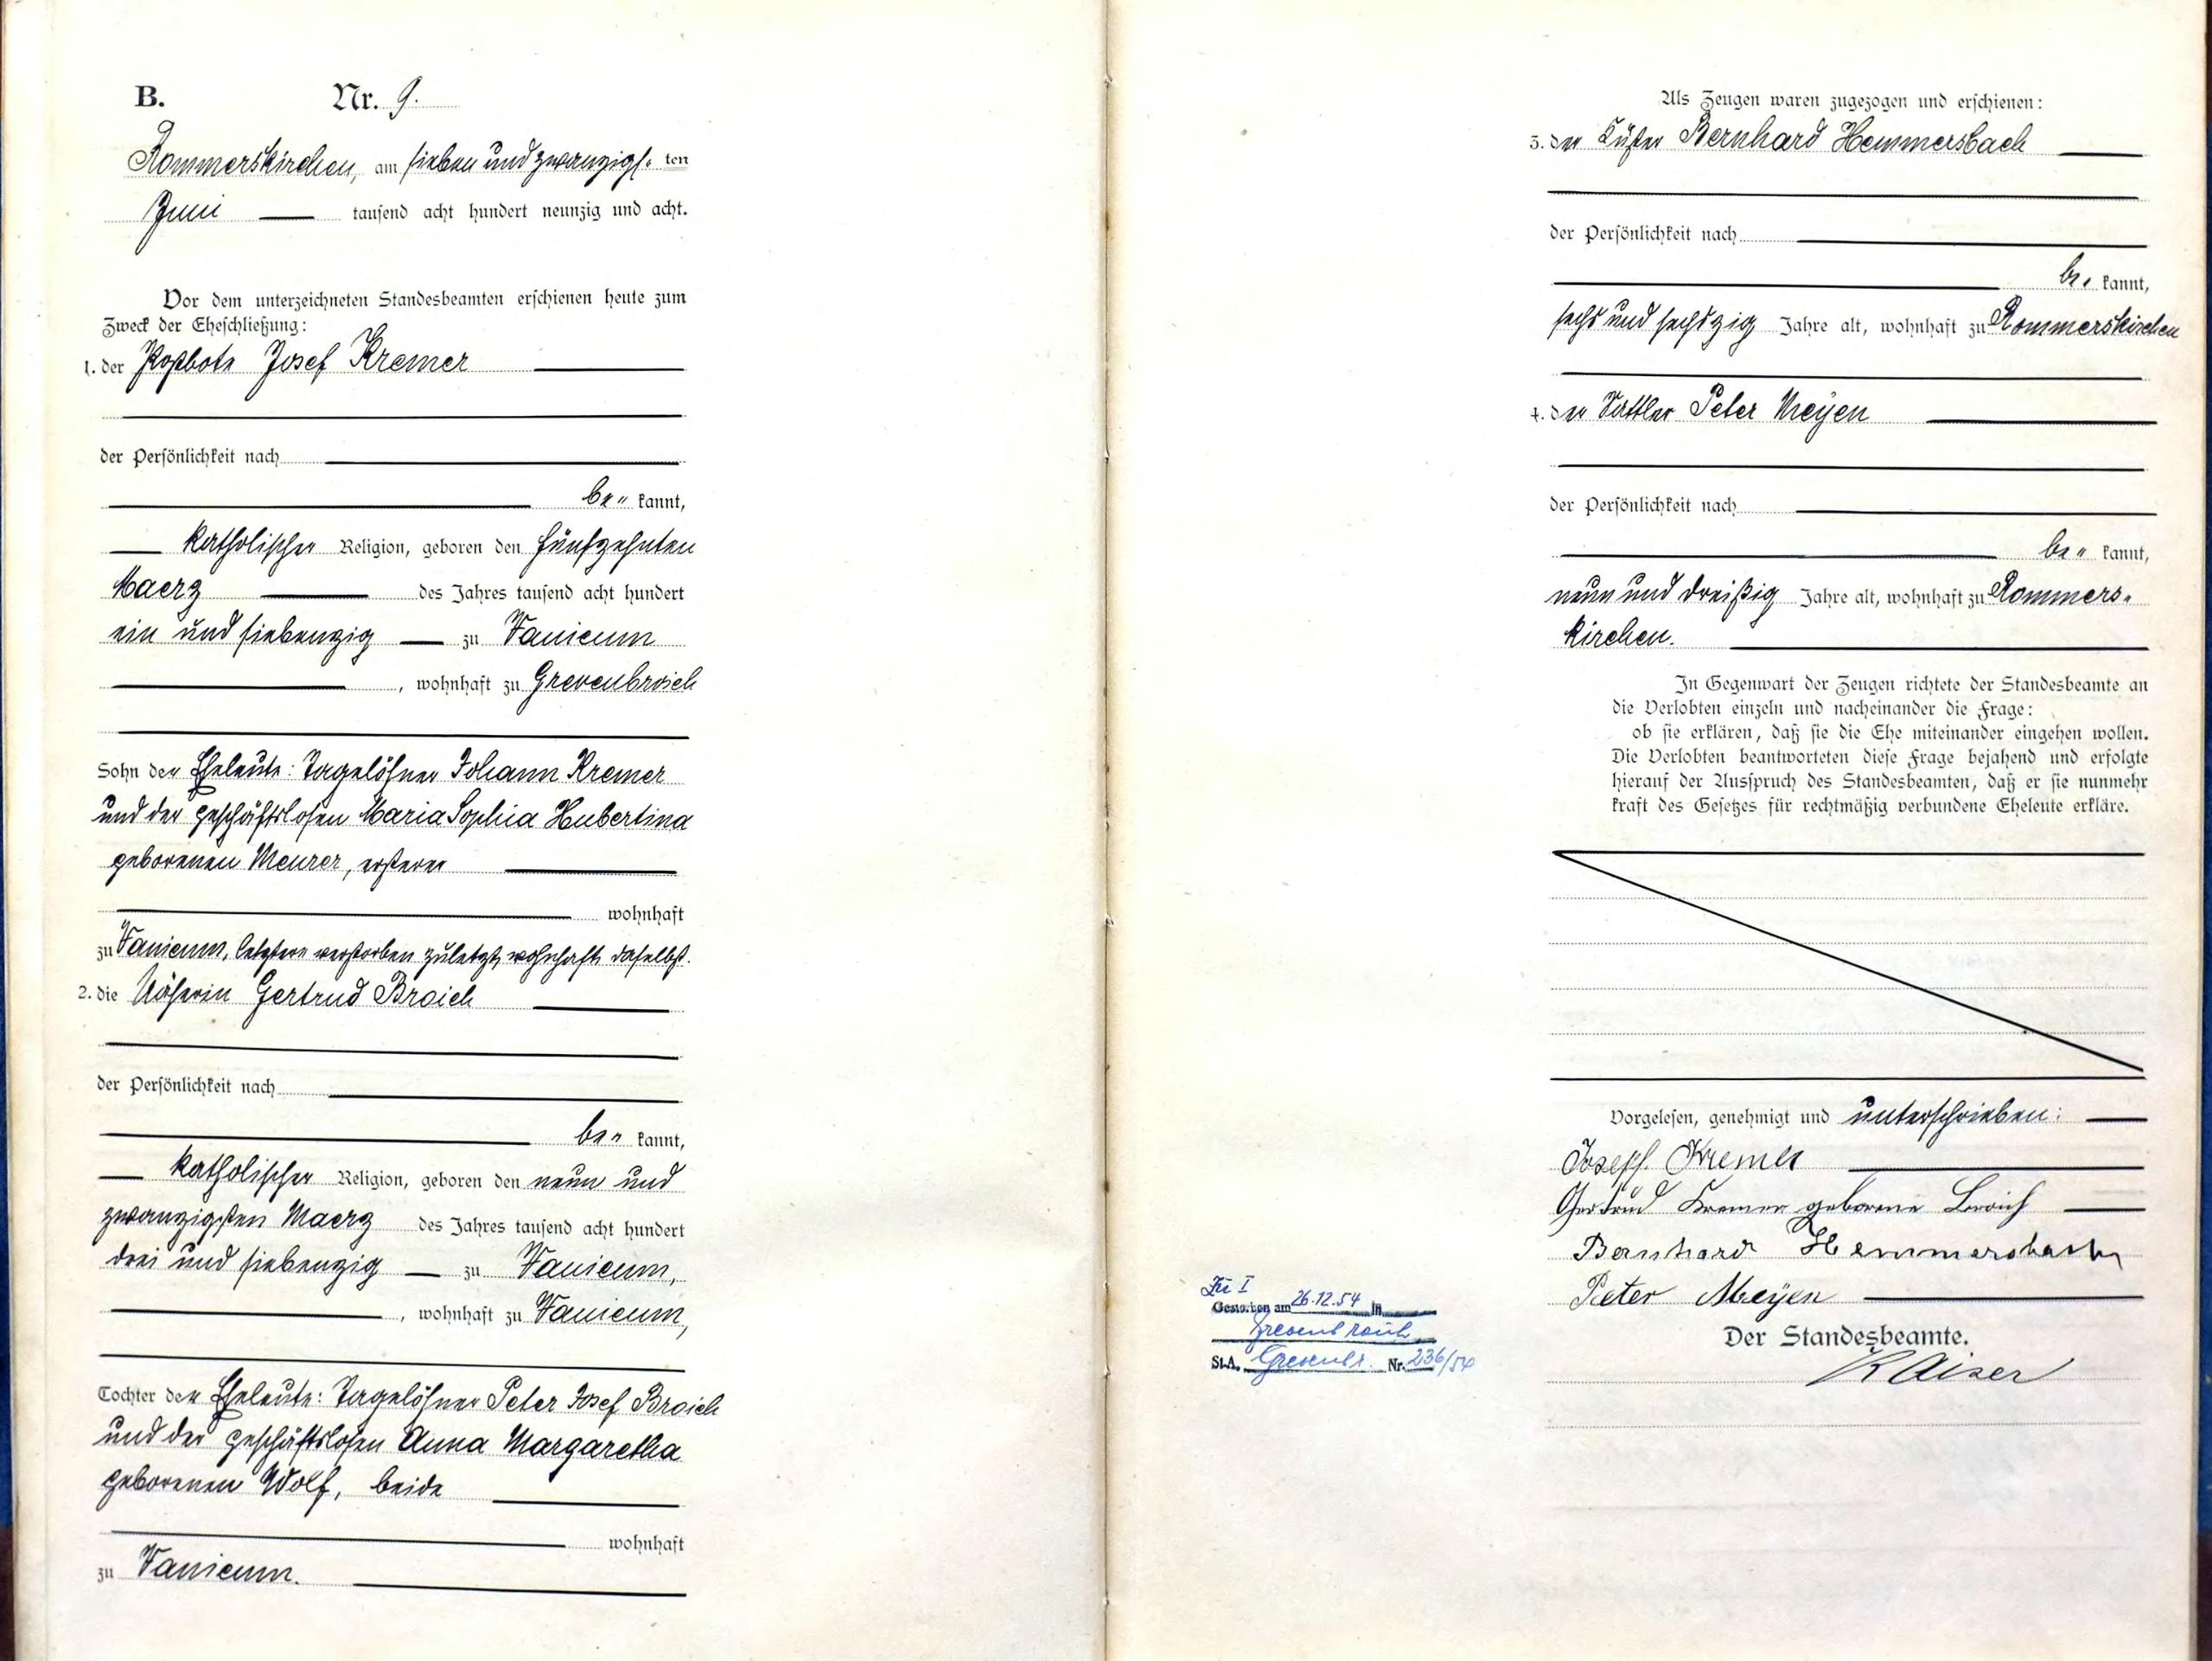 B. Nr. 9.
Rommerskirchen, am sieben und zwanzigs- ten
Juni tausend acht hundert neunzig und acht.
Vor dem unterzeichneten Standesbeamten erschienen heute zum
Zweck der Eheschließung:
1. der Postbote Josef Kremer
der Persönlichkeit nach
be- kannt,
katholischer Religion, geboren den fünfzehnten
Maerz des Jahres tausend acht hundert
ein und siebenzig zu Vanicum
, wohnhaft zu Grevenbroich
Sohn der Eheleute: Tagelöhner Johann Kremer
und der geschäftslosen Maria Sophia Hubertina
geborenen Meurer, ersterer
wohnhaft
zu Vanicum, letztere verstorben zuletzt wohnhaft daselbst.
2. die Näherin Gertrud Broich
der Persönlichkeit nach
be- kannt,
katholischer Religion, geboren den neun und
zwanzigsten Maerz des Jahres tausend acht hundert
drei und siebenzig zu Vanicum,
, wohnhaft zu Vanicum,
Tochter der Eheleute: Tagelöhner Peter Josef Broich
und der geschäftslosen Anna Margaretha
geborenen Wolf, beide
wohnhaft
zu Vanicum.
Als Zeugen waren zugezogen und erschienen:
3. der Küster Bernhard Hemmersbach
der Persönlichkeit nach
be- kannt,
sechs und sechszig Jahre alt, wohnhaft zu Rommerskirchen
4. der Sattler Peter Meyen
der Persönlichkeit nach
be- kannt,
neun und dreißig Jahre alt, wohnhaft zu Rommers-
kirchen.
In Gegenwart der Zeugen richtete der Standesbeamte an
die Verlobten einzeln und nacheinander die Frage:
ob sie erklären, daß sie die Ehe miteinander eingehen wollen.
Die Verlobten beantworteten diese Frage bejahend und erfolgte
hierauf der Ausspruch des Standesbeamten, daß er sie nunmehr
kraft des Gesetzes für rechtmäßig verbundene Eheleute erkläre.
Vorgelesen, genehmigt und unterschrieben:
Joseph Kremer
Gertrud Kremer geborene Broich
Bernhard Hemmersbach
Peter Meyen
Der Standesbeamte.
Kaiser
Zu 1
Gestorben am 26.12.54 in
Grevenbroich
St.A. Grevenbr. Nr. 236/54